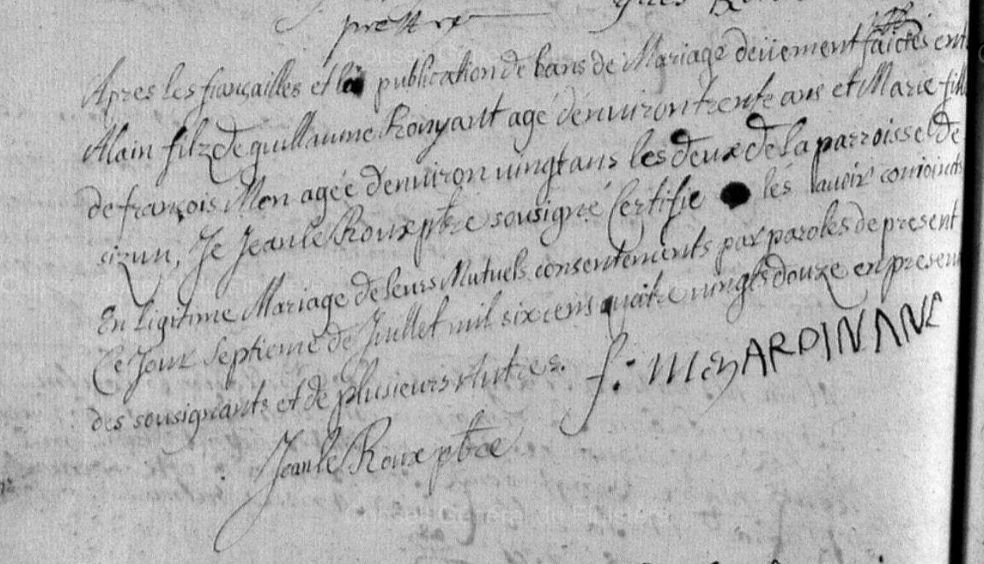 prettre
Apres les françailles et la publication de bans de Mariage deüement faictes entre
Alain filz de guillaume agé d'environ trente ans et Marie fille
de françois Men agée d'environ vingt ans les deux de la parroisse de
sizun, Je Jean le Roux pbre sousigné Certifie les avoir conioincts
En Ligitime Mariage de leurs Mutuels consentements par paroles de present
Ce Jour septieme de Juillet mil six cens quatre vingts douze en presen
des sousignants et de plusieurs Autres.
Jean le Roux pbre